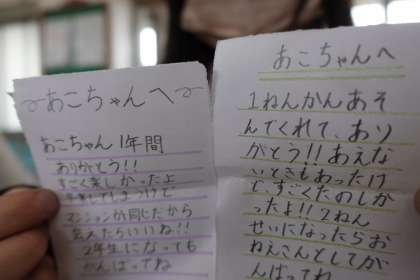 ～あこちゃんへ～
あこちゃん1年間
ありがとう!!
すごく楽しかったよ
卒業してしまうけど
マンションが同じだから
会えたらいいね!!
2年生になっても
がんばってね
あこちゃんへ
1ねんかんあそ
んでくれて、あり
がとう!!あえな
いときもあったけ
ど、すごくたのしか
ったよ!!2ねん
せいになったらお
ねえさんとしてが
んばってね